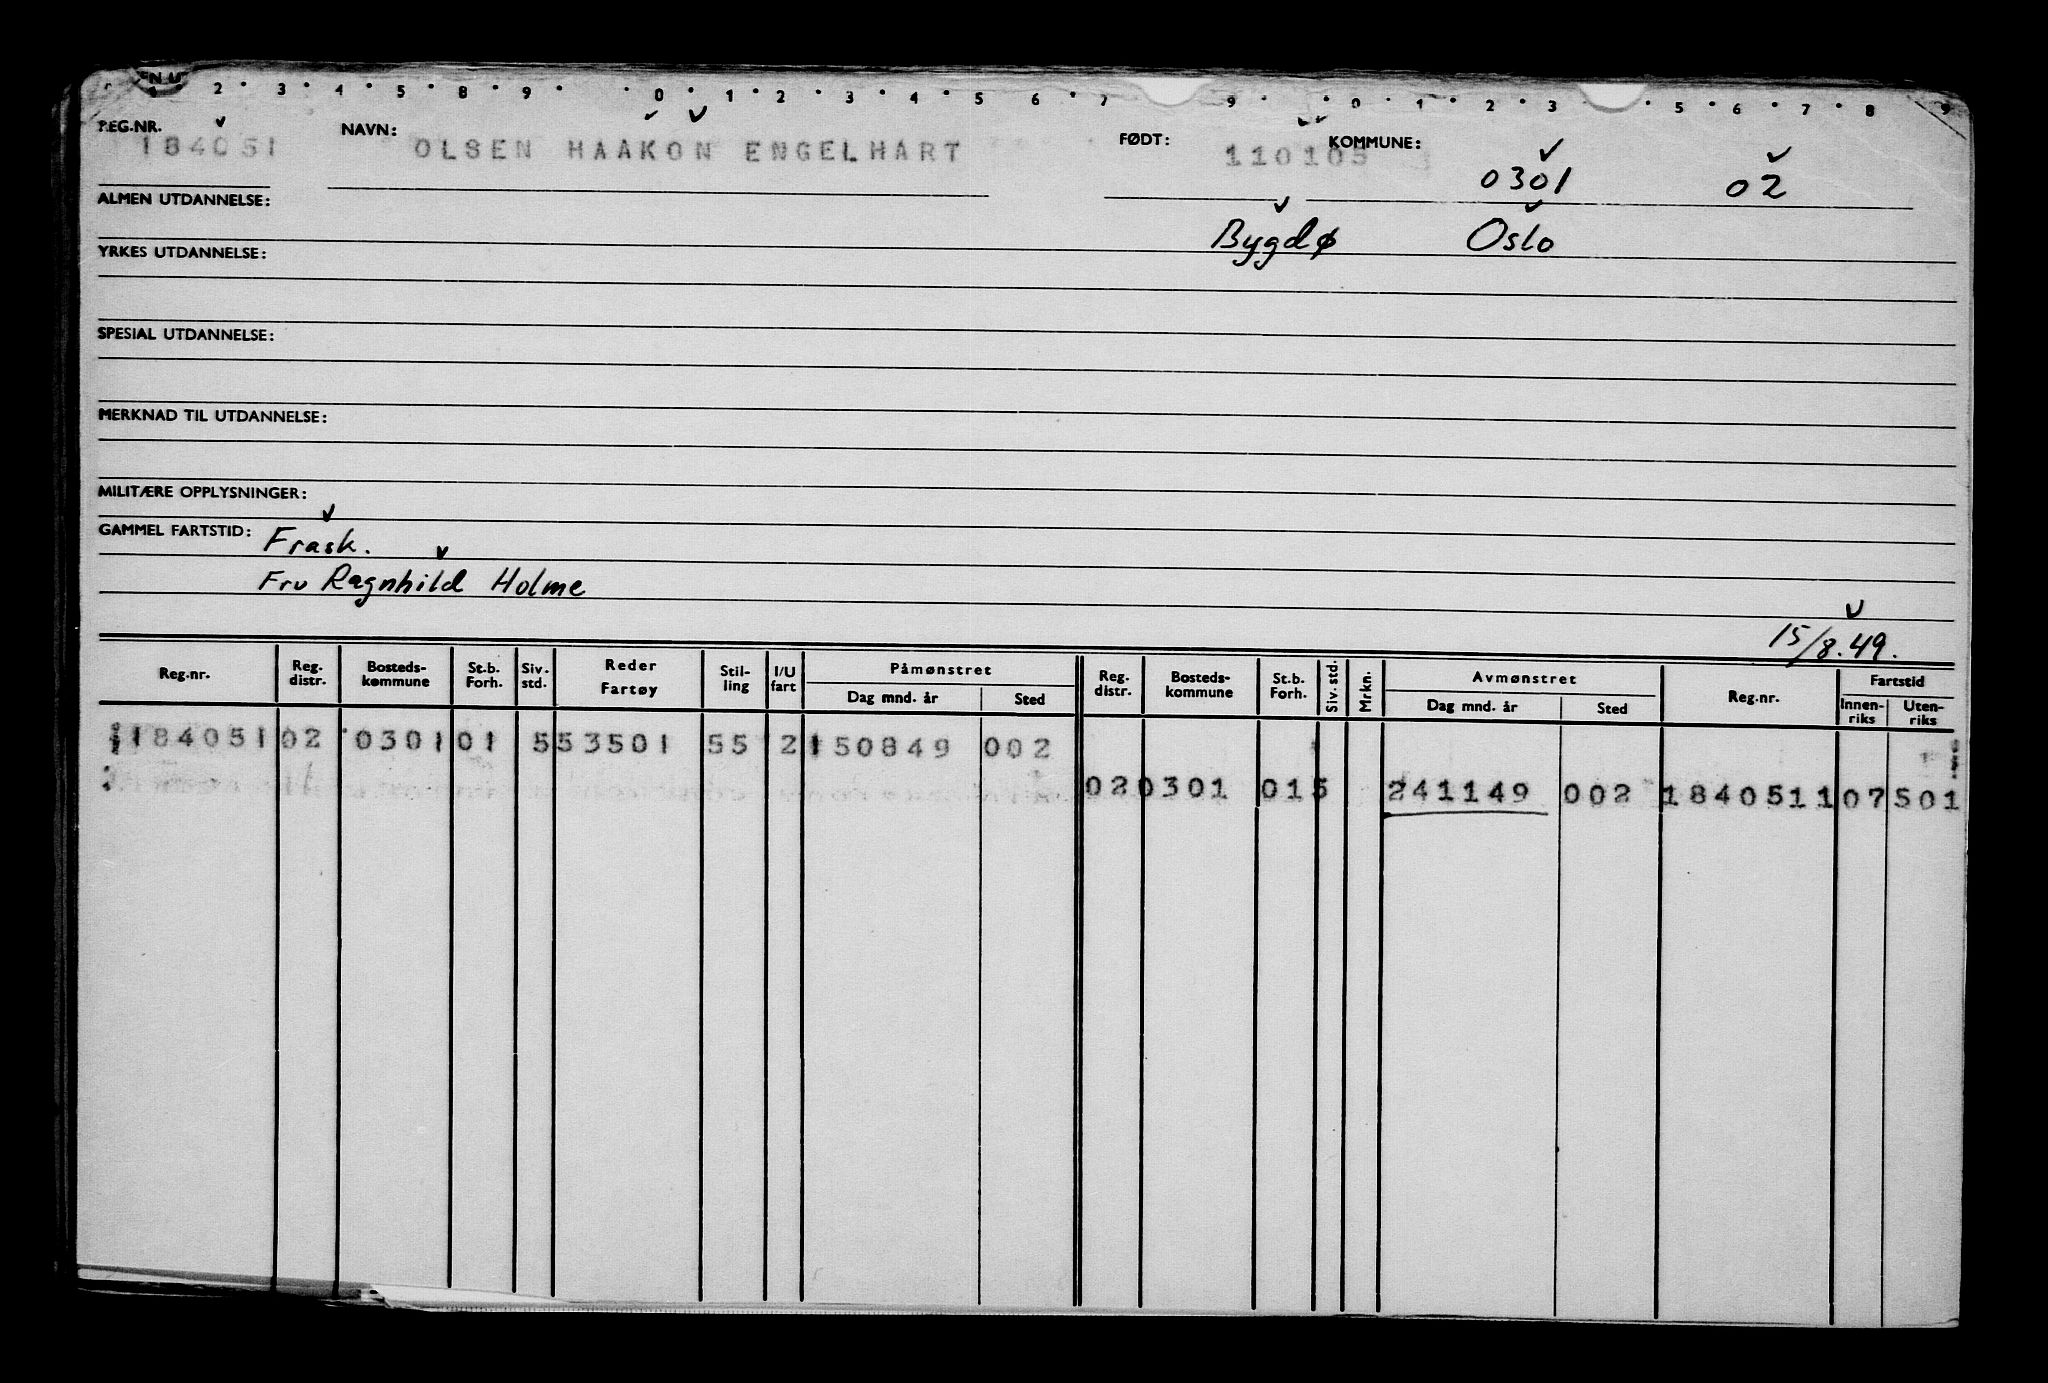 2 3 4 5 8 9 0 1 2 3 4 5 6 7 9 0 1 2 3 5 6 7 8 9
REG.NR. 184051 NAVN: OLSEN HAAKON ENGELHART FØDT: 110105 KOMMUNE: 0301 02
ALMEN UTDANNELSE: Bygdø Oslo
YRKES UTDANNELSE:
SPESIAL UTDANNELSE:
MERKNAD TIL UTDANNELSE:
MILITÆRE OPPLYSNINGER:
GAMMEL FARTSTID: Frask.
Fru Ragnhild Holme
15/8.49.
Reg.nr. Reg. distr. Bosteds-kommune St.b. Forh. Siv. std. Reder Fartøy Stil-ling I/U fart Påmønstret Dag mnd. år Sted Reg. distr. Bosteds-kommune St.b. Forh. Siv. std. Mrkn. Avmønstret Dag mnd. år Sted Reg.nr. Fartstid Innen-riks Uten-riks
184051 02 0301 01 5 53501 55 2 150849 002
02 0301 01 5 241149 002 184051 1 07 501